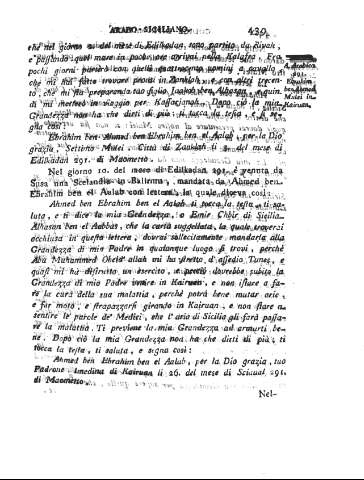 ARABO-SICILIANO 439
che nel giorno 11. del mese di Edilkadan sono partito da Riyah,
e passando quel mare in pochi
pochi giorni
che mi hai fatto trovare pronti in Zanklah, e con altri trecen-
to, che mi sta preparando tuo figlio Iaalab ben Alhasan, e quin-
di mi metterò in viaggio per Kafsarjanah. Dopo ciò la mia
Grandezza non ha che dirti di più, ti tocca la testa, e si se-
gna così:
Ebrahim ben Ahmed ben Ebrahim ben el Aalab, per la Dio
grazia, Settimo Mulei. Città di Zanklah li 11. del mese di
Edilkadan 291. di Maometto.
Nel giorno 10. del mese di Edilkadan 291. è venuta da
Susa una Scelandia in Balirmu, mandata da Ahmed ben
Ebrahim ben el Aalab con lettera, la quale diceva così:
Ahmed ben Ebrahim ben el Aalab ti tocca la testa, ti sa-
luta, e ti dice la mia Grandezza, o Emir Chbir di Sicilia
Alhasan ben el Aabbas, che la carta suggellata, la quale troverai
acchiusa in questa lettera, dovrai sollecitamente mandarla alla
Grandezza di mio Padre in qualunque luogo si trovi, perchè
Aba Muhammed Okeid allah mi ha stretto d'assedio Tunes, e
quasi mi ha distrutto un esercito, e perciò dovrebbe subito la
Grandezza di mio Padre venire in Kairuan, e non stare a fa-
re la cura della sua malattia, perchè potrà bene mutar arie,
e far moto, e strapazzarsi girando in Kairuan, e non stare a
sentire le parole de' Medici, che l'aria di Sicilia gli farà passa-
re la malattia. Ti previene la mia Grandezza ad armarti be-
ne. Dopo ciò la mia Grandezza non ha che dirti di più; ti
tocca la testa, ti saluta, e signa così:
Ahmed ben Ebrahim ben el Aalab, per la Dio grazia, tuo
Padrone. Imedina di Kairuan li 26. del mese di Sciaual 291.
di Maometto.
Nel-
A. Arabico
291.
Ebrahim
ben Ahmed
Mulei in
Kairuan.